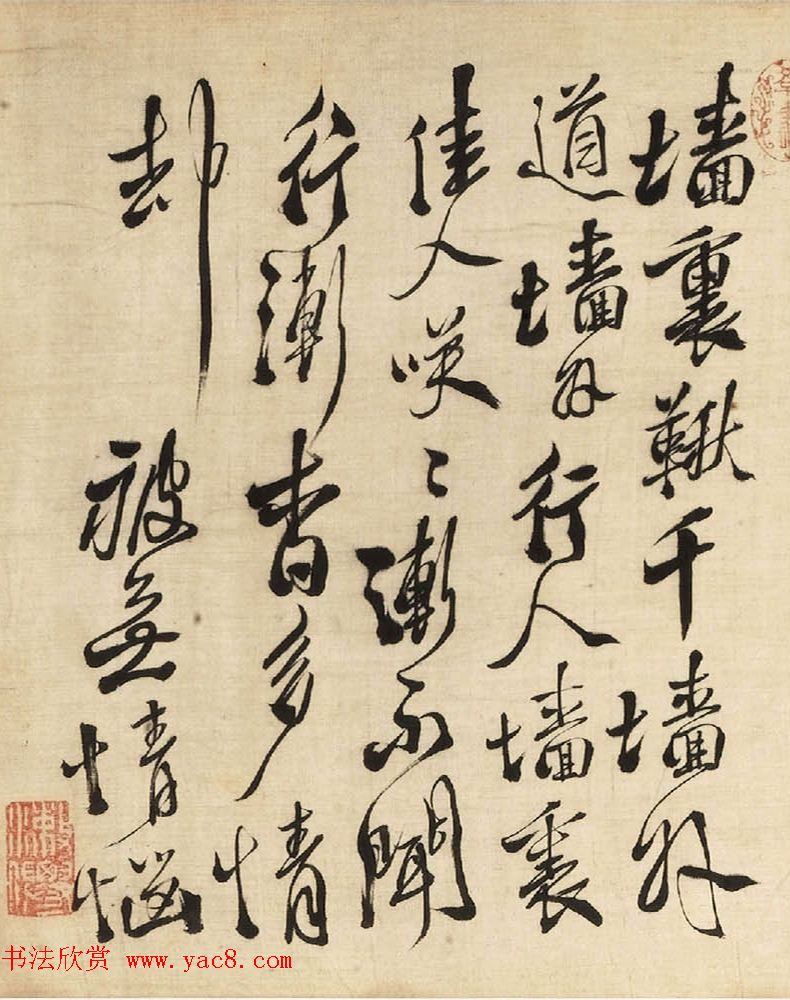 墙裏鞦千墙外
道墙外行人墙裏
佳人咲〻漸不聞
行漸杳多情
却被無情惱
书法欣赏 www.yac8.com